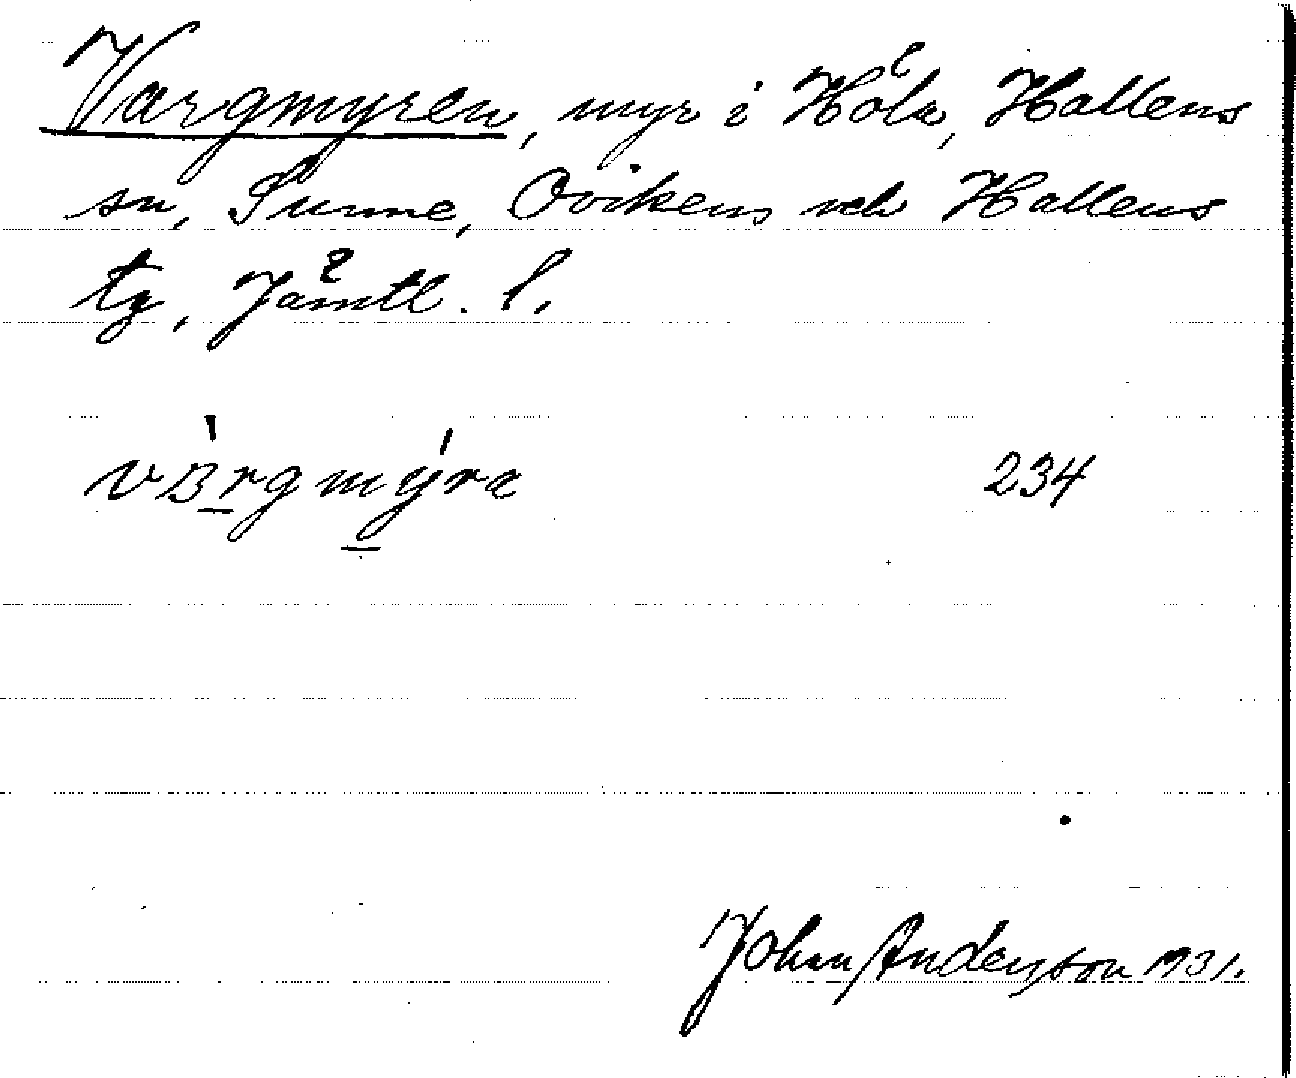 Vargmyren, myr i Höla, Hallens
sn, Sunne, Ovikens och Hallens
tg, Jämtl. l.
234
Johan Anderson 1931.